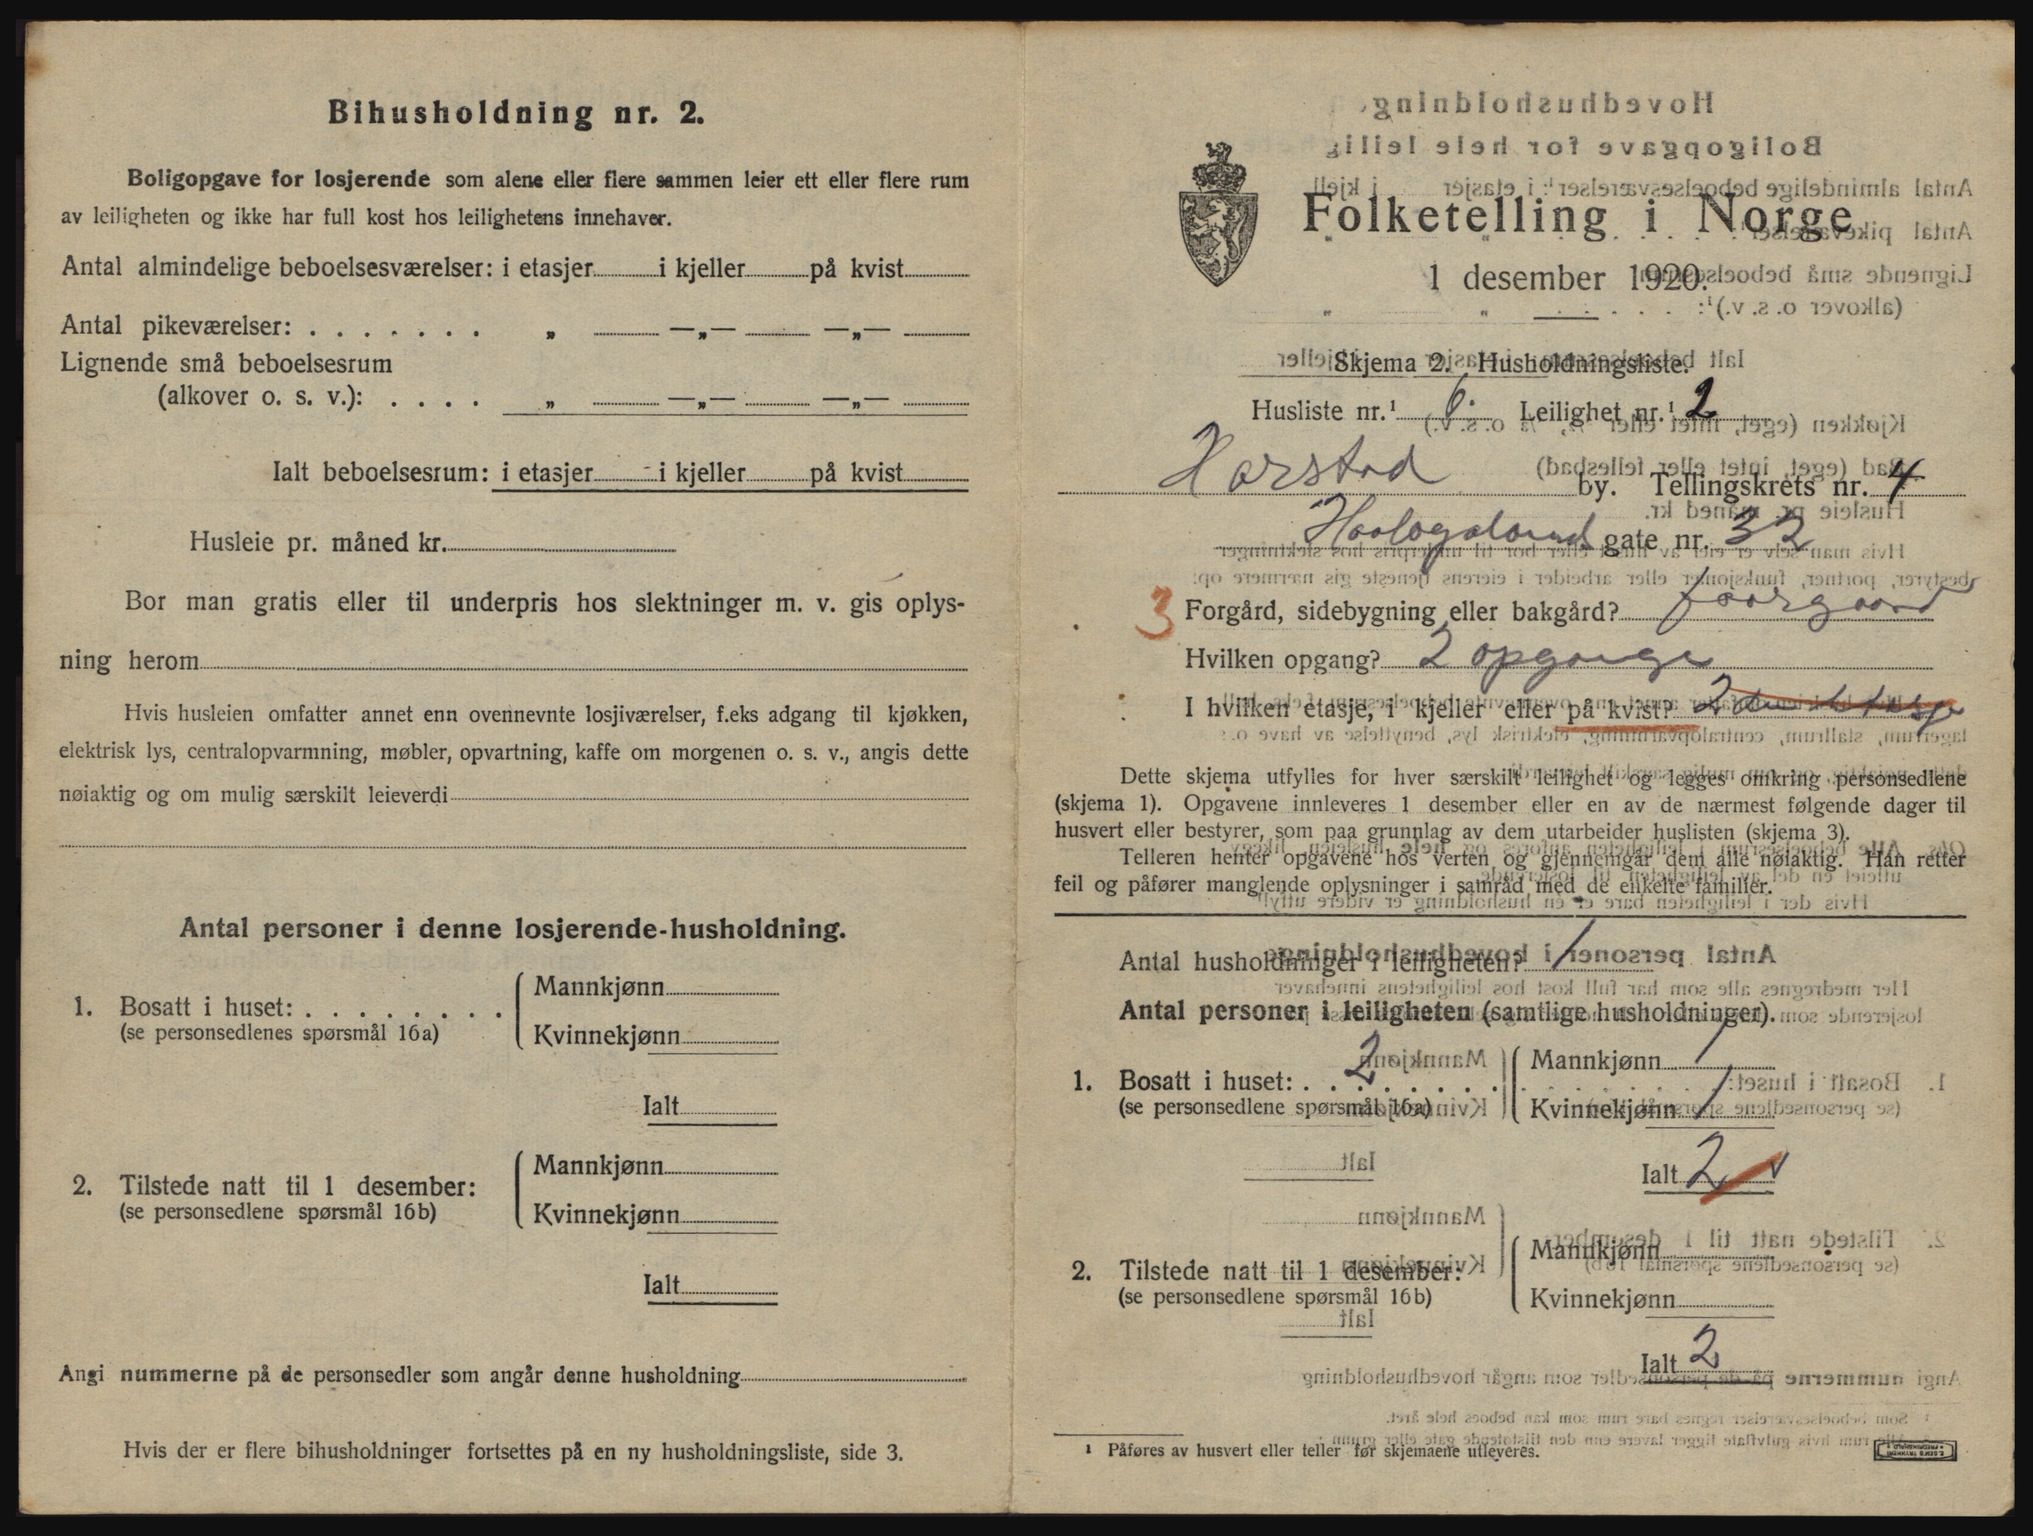 Bihusholdning nr. 2.
Boligopgave for losjerende som alene eller flere sammen leier ett eller flere rum
av leiligheten og ikke har full kost hos leilighetens innehaver.
Antal almindelige beboelsesværelser: i etasjer i kjeller på kvist
Antal pikeværelser: . . . . . . . „ —„— —„—
Lignende små beboelsesrum
(alkover o. s. v.): . . . . „ —„— —„—
Ialt beboelsesrum: i etasjer i kjeller på kvist
Husleie pr. måned kr.
Bor man gratis eller til underpris hos slektninger m. v. gis oplys-
ning herom
Hvis husleien omfatter annet enn ovennevnte losjiværelser, f.eks adgang til kjøkken,
elektrisk lys, centralopvarmning, møbler, opvartning, kaffe om morgenen o. s. v., angis dette
nøiaktig og om mulig særskilt leieverdi
Antal personer i denne losjerende-husholdning.
1. Bosatt i huset: . . . . . . . . Mannkjønn
(se personsedlenes spørsmål 16a) Kvinnekjønn
Ialt
2. Tilstede natt til 1 desember: Mannkjønn
(se personsedlene spørsmål 16b) Kvinnekjønn
Ialt
Angi nummerne på de personsedler som angår denne husholdning
Hvis der er flere bihusholdninger fortsettes på en ny husholdningsliste, side 3.
Folketelling i Norge
1 desember 1920.
Skjema 2. Husholdningsliste.
Husliste nr.¹ 6. Leilighet nr.¹ 2
Harstad by. Tellingskrets nr. 4
Haalogaland gate nr. 32
3 Forgård, sidebygning eller bakgård? foorgaard
Hvilken opgang? 2 opgange
I hvilken etasje, i kjeller eller på kvist? 2
Dette skjema utfylles for hver særskilt leilighet og legges omkring personsedlene
(skjema 1). Opgavene innleveres 1 desember eller en av de nærmest følgende dager til
husvert eller bestyrer, som paa grunnlag av dem utarbeider huslisten (skjema 3).
Telleren henter opgavene hos verten og gjennemgår dem alle nøiaktig. Han retter
feil og påfører manglende oplysninger i samråd med de enkelte familier.
Antal husholdninger i leiligheten? 1
Antal personer i leiligheten (samtlige husholdninger).
1. Bosatt i huset: . . . 2 . . . . . Mannkjønn 1
(se personsedlene spørsmål 16a) Kvinnekjønn 1
Ialt 2
2. Tilstede natt til 1 desember: Mannkjønn
(se personsedlene spørsmål 16b) Kvinnekjønn
Ialt 2
¹ Påføres av husvert eller teller før skjemaene utleveres.